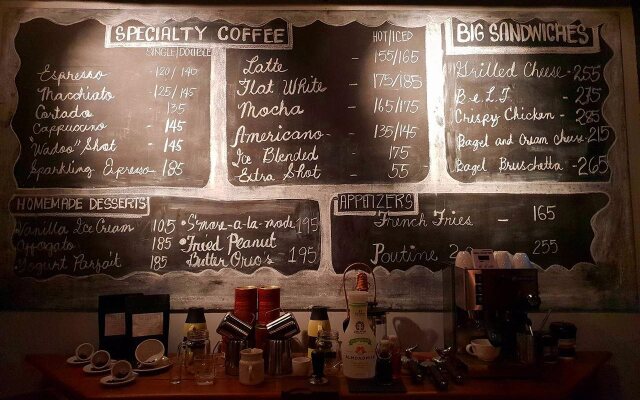 SPECIALTY COFFEE
SINGLE/DOUBLE
Espresso - 120/145
Macchiato - 125/145
Cortado - 135
Cappuccino - 145
"Wadoo" Shot - 145
Sparkling Espresso - 185
HOT/ICED
Latte - 155/165
Flat White - 175/185
Mocha - 165/175
Americano - 135/145
Ice Blended 175
Extra Shot - 55
BIG SANDWICHES
Grilled Cheese - 255
B.L.T - 275
Crispy Chicken - 285
Bagel and Cream Cheese - 215
Bagel Bruschetta - 265
HOMEMADE DESSERTS
Vanilla Ice Cream 105
Affogato 185
Yogurt Parfait 185
• S'more-a-la-mode 195
• Fried Peanut
Butter Oreo's - 195
APPETIZERS
French Fries - 165
Poutine 255